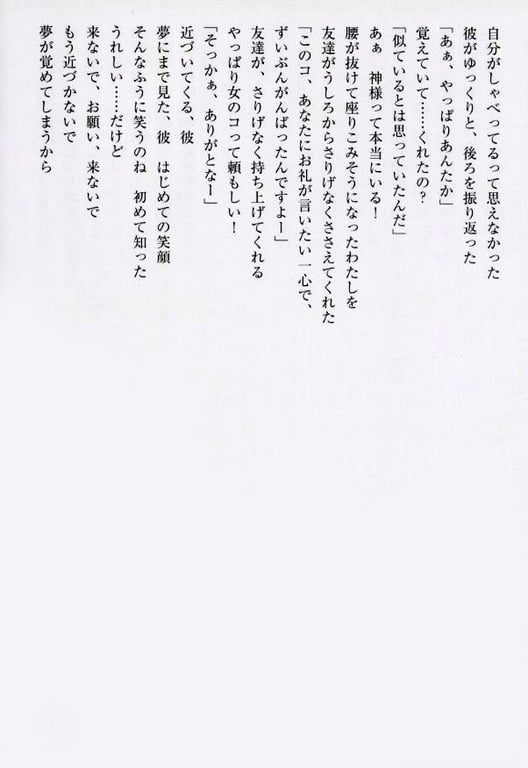 自分がしゃべってるって思えなかった
彼がゆっくりと、後ろを振り返った
「あぁ、やっぱりあんたか」
覚えていて……くれたの？
「似ているとは思っていたんだ」
あぁ　神様って本当にいる！
腰が抜けて座りこみそうになったわたしを
友達がうしろからさりげなくささえてくれた
「このコ、あなたにお礼が言いたい一心で、
ずいぶんがんばったんですよー」
友達が、さりげなく持ち上げてくれる
やっぱり女のコって頼もしい！
「そっかぁ、ありがとなー」
近づいてくる、彼
夢にまで見た、彼　はじめての笑顔
そんなふうに笑うのね　初めて知った
うれしい……だけど
来ないで、お願い、来ないで
もう近づかないで
夢が覚めてしまうから